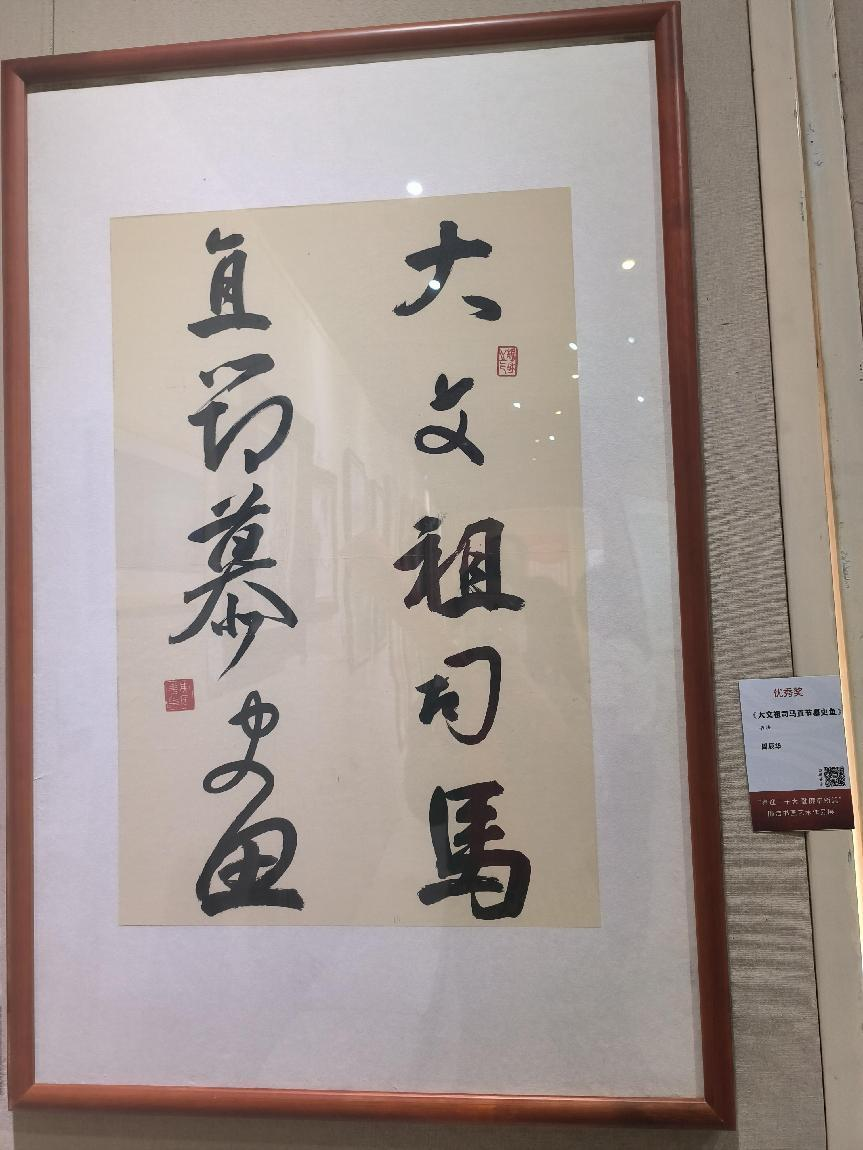 大文祖司馬
直節慕史魚
优秀奖
《大文祖司马直节慕史鱼》